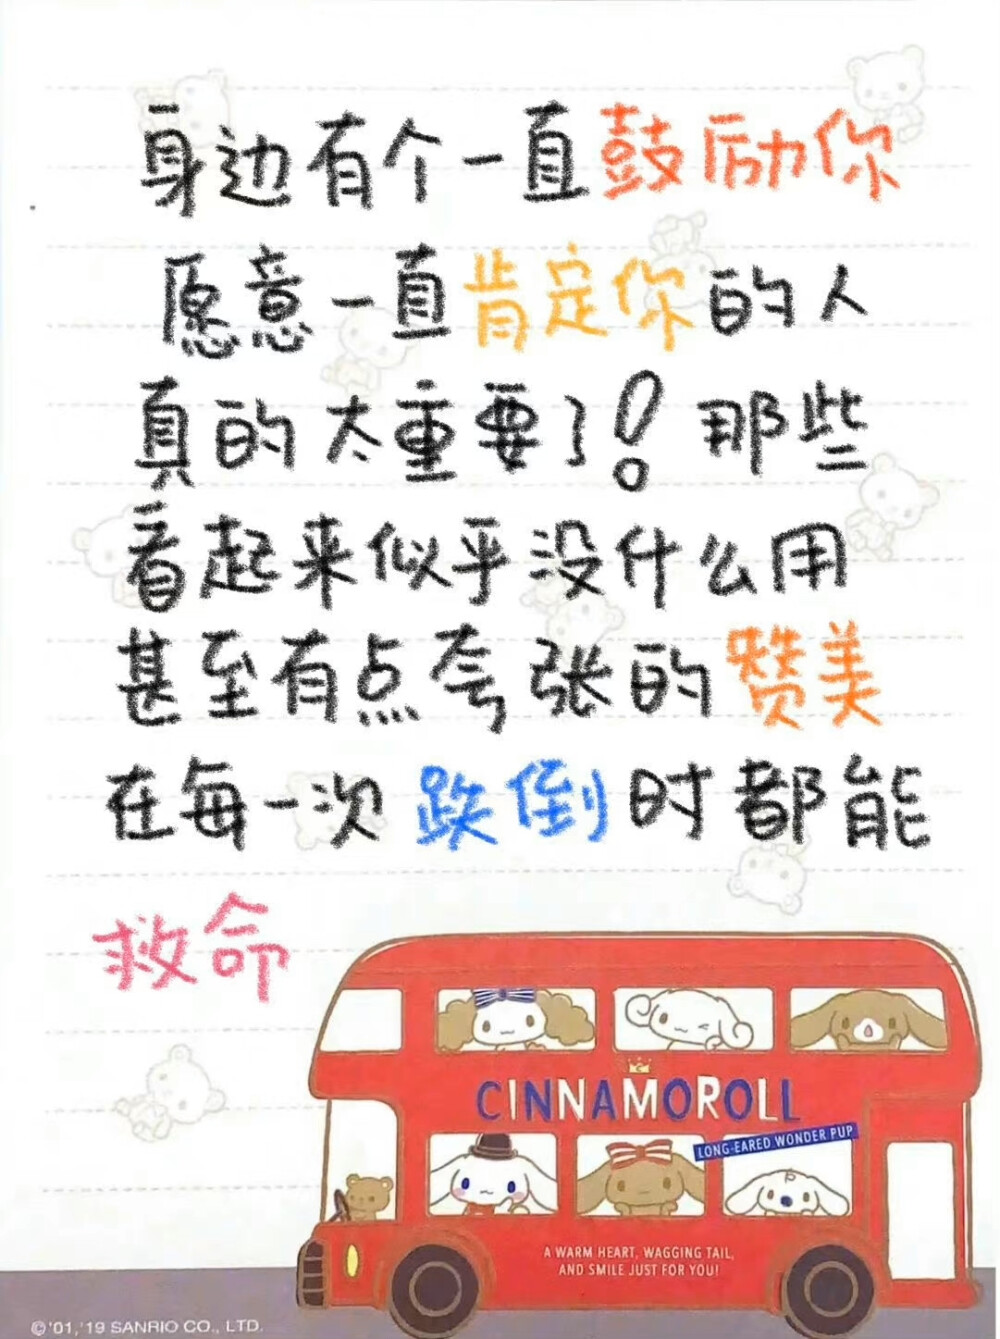 身边有个一直鼓励你
愿意一直肯定你的人
真的太重要了！那些
看起来似乎没什么用
甚至有点夸张的赞美
在每一次跌倒时都能
救命
CINNAMOROLL
LONG-EARED WONDER PUP
A WARM HEART, WAGGING TAIL,
AND SMILE JUST FOR YOU!
©'01,'19 SANRIO CO., LTD.